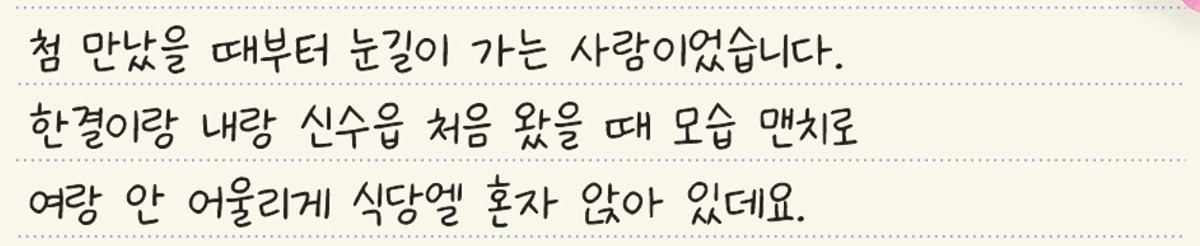 첨 만났을 때부터 눈길이 가는 사람이었습니다.
한결이랑 내랑 신수읍 처음 왔을 때 모습 맨치로
여랑 안 어울리게 식당엘 혼자 앉아 있데요.